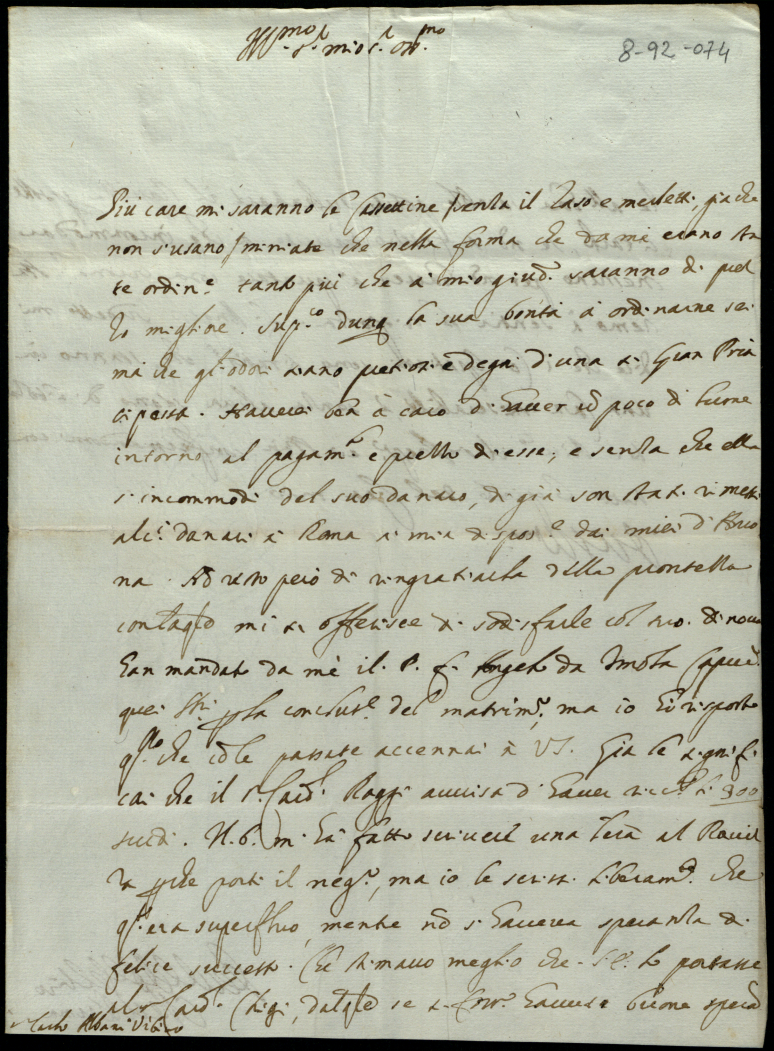 Ill.mo S.r mio S.r Oss.mo
8-92-074
Più care mi saranno le Cassettine senza il raso e merletti, già che
non s'usano, inviate che nella forma che da mè erano sta
te ordin.e tanto più che à mio giud.o saranno di quel
le migliore. Sup.co dunq la sua bontà à ordinarne sei
mà che gl'odori siano pretiosi e degni d'una sì Gran Prin
cipessa. Haverei ben à caro d'haver un poco di lume
intorno al pagam.to e quello di esse, e senza che ella
s'incommodi del suo danaro, di già son stati rimessi
alc.i danari à Roma à mia dispos.e dai miei d'Anco
na. Ad resto però di ringratiarla della prontezza
con la qle mi si offerisce di sodisfarle col suo. Di novo
han mandato da mè il P. f. Angelo da Imola Capuc.o
quei Sri p la conclus.e del matrim.o, ma io hò risposto
q.llo che con le passate accennai à VS. Già le signifi
cai che il S. Card. Raggi avvisa d'haver 300
scudi. N. S. mi hà fatto scrivere una lra al
p che porti il neg.o, ma io le scrissi liberam.e che
q. era superfluo, mentre nò s'haverea speranza di
felice successo. Che stimavo meglio che S.E. lo portasse
al S. Card. Chigi, dal qle se havesse buone speran
S. Carlo Albani Urbino